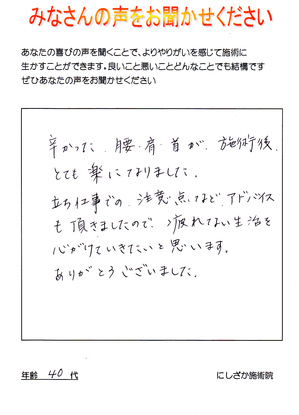 みなさんの声をお聞かせください
あなたの喜びの声を聞くことで、よりやりがいを感じて施術に
生かすことができます。良いこと悪いことどんなことでも結構です
ぜひあなたの声をお聞かせください
辛かった 腰・肩・首が、施術後、
とても楽になりました。
立ち仕事での、注意点など、アドバイス
も頂きましたので、疲れない生活を
心がけていきたいと思います。
ありがとうございました。
年齢 40 代
にしざか施術院